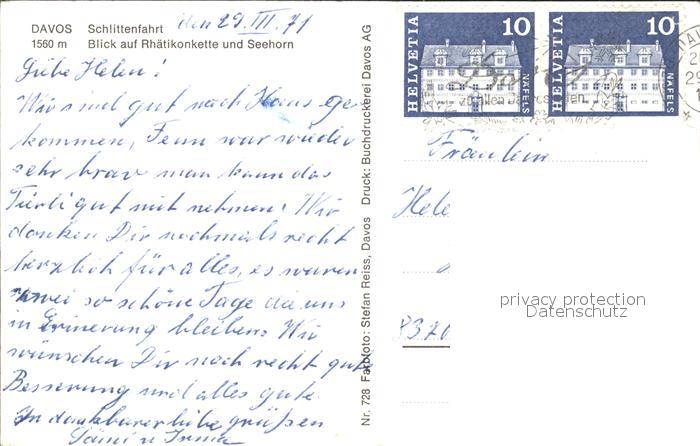 DAVOS Schlittenfahrt
1560 m Blick auf Rhätikonkette und Seehorn
den 29. III. 71
Liebe Helen!
Wir sind gut nach Haus ge
kommen, Fenn war wieder
sehr brav man kann das
Tierli gut mit nehmen! Wir
danken Dir nochmals recht
herzlich für alles, es waren
zwei so schöne Tage die uns
in Erinerung bleiben. Wir
wünschen Dir noch recht gute
Besserung und alles gute.
In dankbarer liebe grüssen
u Irma
Nr. 728 Farbfoto: Stefan Reiss, Davos Druck: Buchdruckerei Davos AG
HELVETIA 10 NÄFELS
HELVETIA 10 NÄFELS
Davos
zu allen Jahreszeiten
Fräulein
Hele
8370
privacy protection
Datenschutz